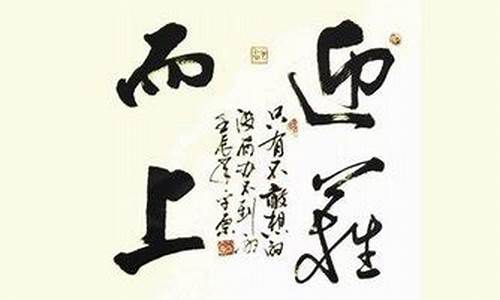 迎難
而上
只有不敢想的
沒有办不到的
壬辰